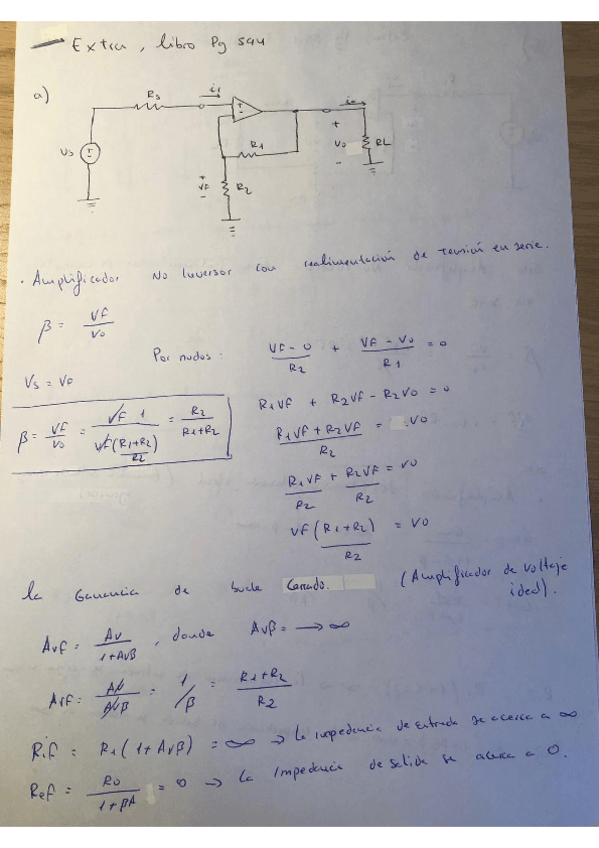 — Extra, libro Pg 544
a)
Rs
i1
io
Vs
R1
VF
R2
Vo
RL
· Amplificador No Inversor con realimentación de tensión en serie.
β = VF / Vo
Por nudos: (VF - 0) / R2 + (VF - Vo) / R1 = 0
Vs = VF
R1VF + R2VF - R2Vo = 0
β = VF / Vo = VF 1 / (VF (R1+R2) / R2) = R2 / (R1+R2)
(R1VF + R2VF) / R2 = Vo
R1VF / R2 + R2VF / R2 = Vo
VF (R1+R2) / R2 = Vo
la Ganancia de bucle Cerrado. (Amplificador de voltaje ideal).
Avf = Av / (1+Avβ), donde Avβ = → ∞
Avf = Av / Avβ = 1 / β = (R1+R2) / R2
Rif = R1(1+Avβ) = ∞ → la impedancia de entrada se acerca a ∞
Ref = Ro / (1+βA) = 0 → la Impedancia de salida se acerca a 0.